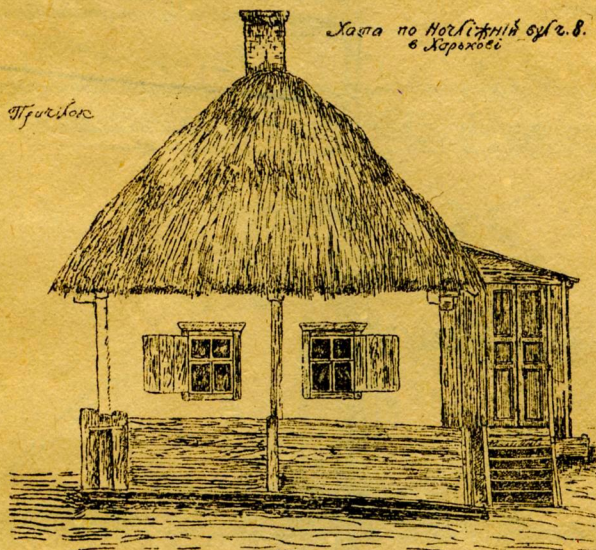 Хата по Ночліжній вул ч. 8.
в Харькові
Причілок